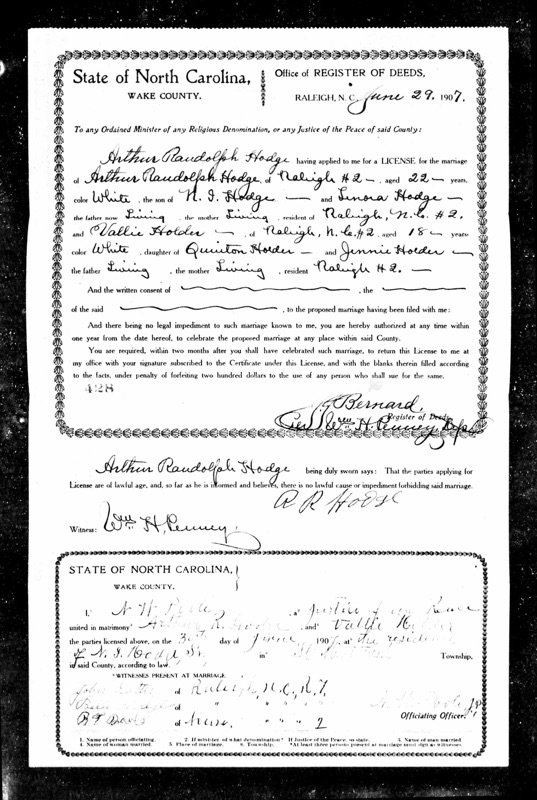 State of North Carolina,
WAKE COUNTY.
Office of REGISTER OF DEEDS,
RALEIGH, N. C. June 29. 1907.
To any Ordained Minister of any Religious Denomination, or any Justice of the Peace of said County:
Arthur Randolph Hodge having applied to me for a LICENSE for the marriage
of Arthur Randolph Hodge, of Raleigh #2 — aged 22 — years,
color White, the son of N. I. Hodge — and Lenora Hodge —
the father now Living, the mother Living, resident of Raleigh, N.C. #2.
and Vallie Holder — of Raleigh, N.C. #2, aged 18 — years
color White, daughter of Quinton Holder — and Jennie Holder —
the father Living, the mother Living, resident Raleigh #2. —
And the written consent of , the
of the said , to the proposed marriage having been filed with me:
And there being no legal impediment to such marriage known to me, you are hereby authorized at any time within
one year from the date hereof, to celebrate the proposed marriage at any place within said County.
You are required, within two months after you shall have celebrated such marriage, to return this License to me at
my office with your signature subscribed to the Certificate under this License, and with the blanks therein filled according
to the facts, under penalty of forfeiting two hundred dollars to the use of any person who shall use for the same.
428
Bernard,
Register of Deeds
Wm H. Penney, Dep
Arthur Randolph Hodge being duly sworn says: That the parties applying for
License are of lawful age, and, so far as he is informed and believes, there is no lawful cause or impediment forbidding said marriage.
A R Hodge
Witness: Wm H. Penney
STATE OF NORTH CAROLINA,
WAKE COUNTY.
I, N W a Justice of the Peace
united in matrimony Arthur R. Hodge and Vallie Holder
the parties licensed above, on the 30th day of June 1907, at the residence
of N. I. Hodge Sr in St Township,
in said County, according to law.
*WITNESSES PRESENT AT MARRIAGE.
John of Raleigh, N.C., R.F.
of " " " "
B T of Neuse. " " " 2
J.P.
Officiating Officer.
1. Name of person officiating. 2. If minister, of what denomination? If Justice of the Peace, so state. 3. Name of man married.
4. Name of woman married. 5. Place of marriage. 6. Township. *At least three persons present at marriage must sign as witnesses.